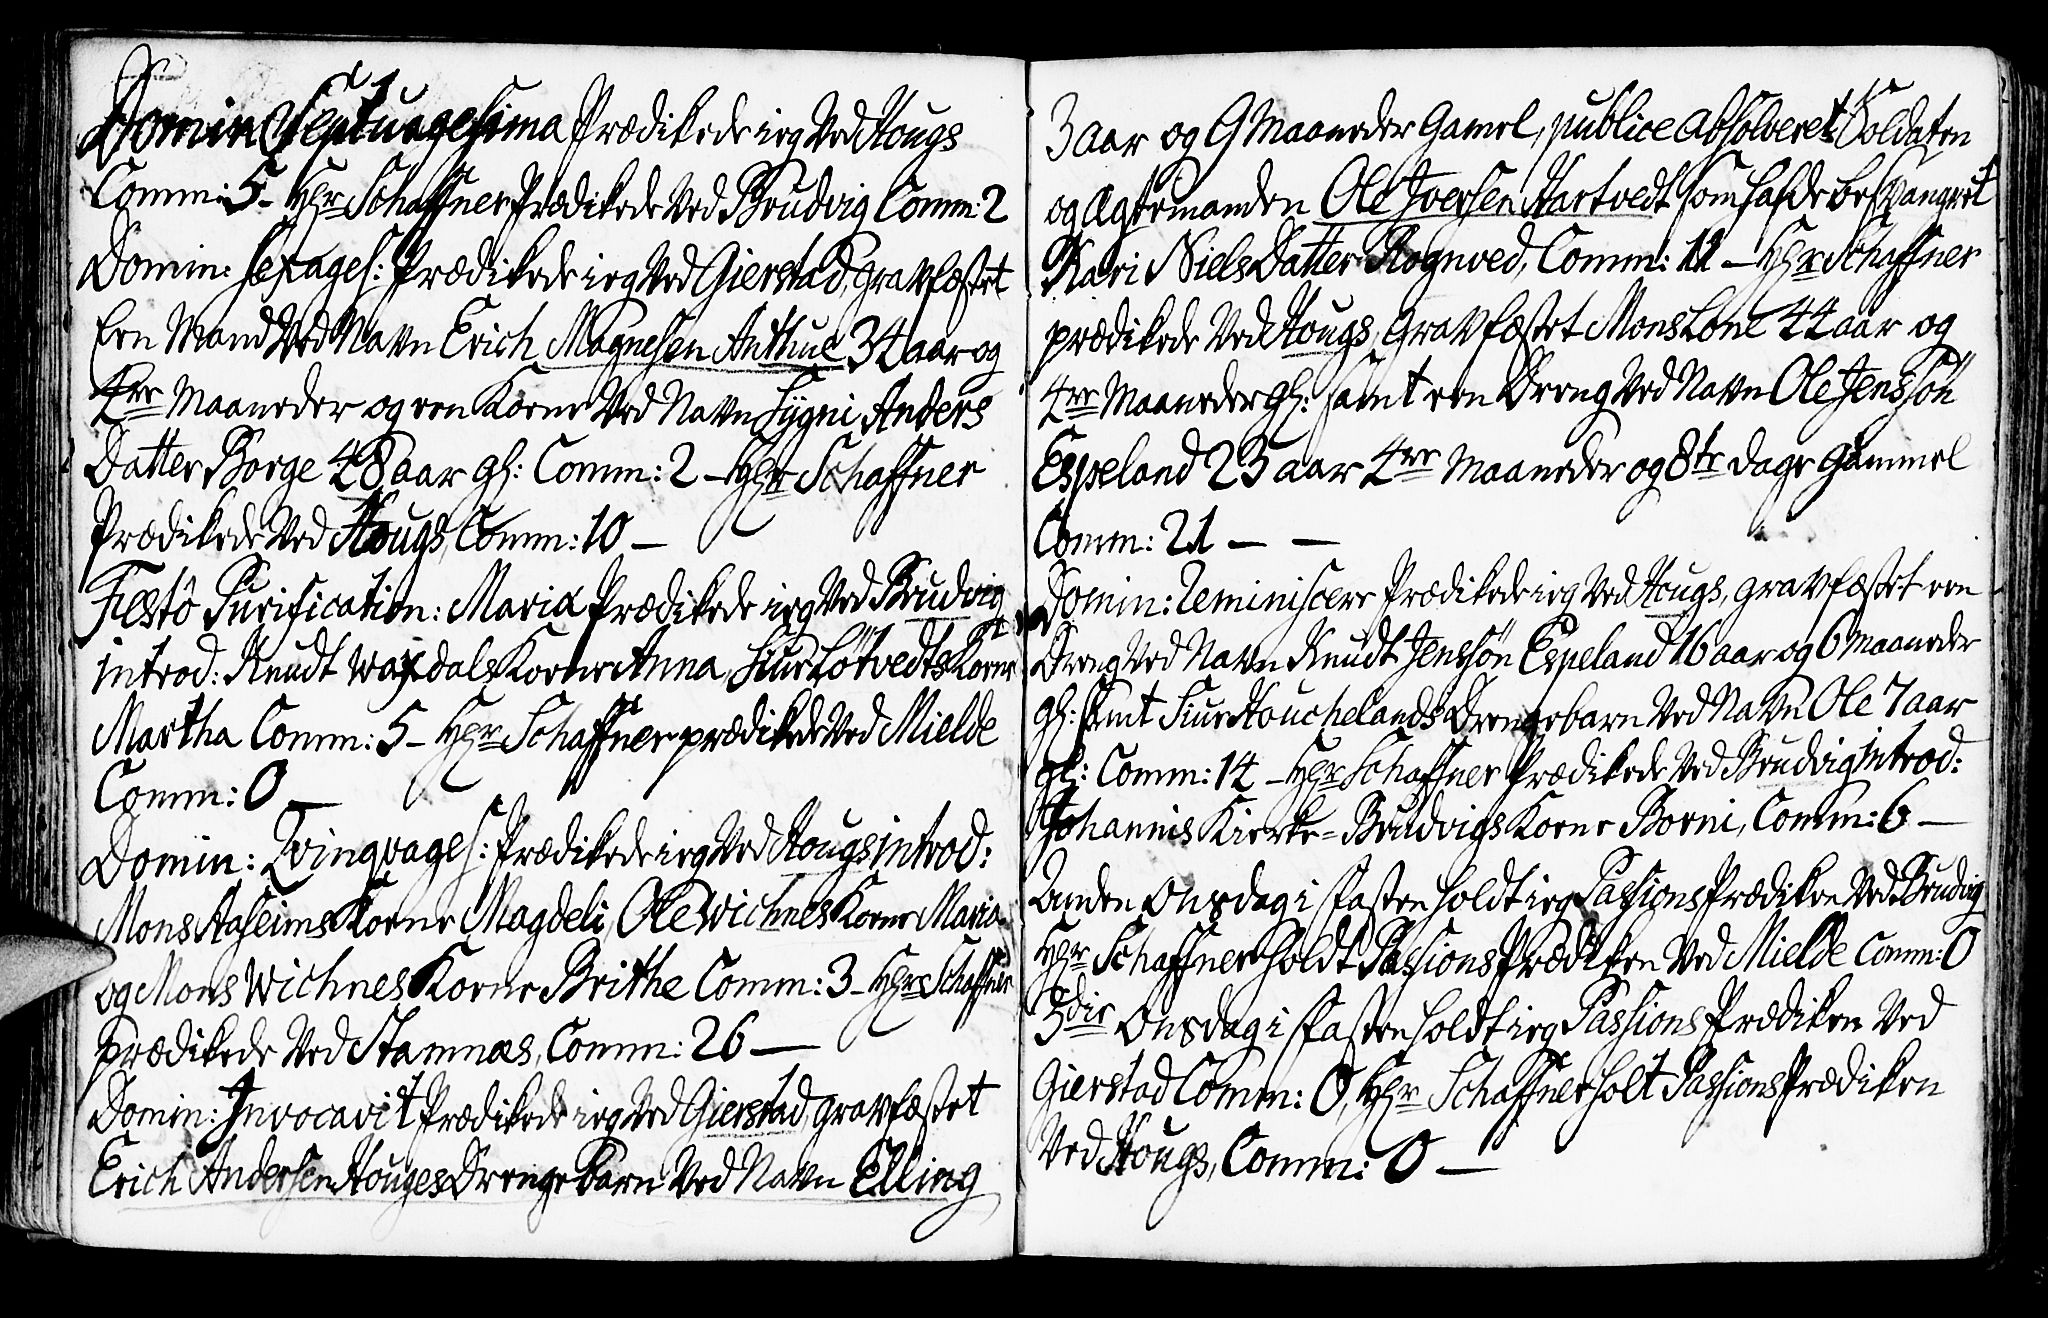 Domin Septuagesima Prædikede ieg Ved Hougs
Comm: 5 - Hr Schaffner Prædikede Ved Brudvig Comm: 2
Domin: Sexages: Prædikede ieg Ved Gierstad, gravfæstet
Een Mand Ved Navn Erich Magnesen Anthue 34 aar og
4re Maaneder og een Kone Ved Navn Sygni Anders
Datter Borge 48 aar gl: Comm: 2 - Hr Schaffner
Prædikede Ved Hougs, Comm: 10 -
Festô Purification: Mariæ Prædikede ieg Ved Brudvig
introd: Knudt Waxdals Kone Anna, Siur Løtvedts Kone
Martha Comm: 5 - Hr Schaffner prædikede Ved Mielde
Comm: 0 -
Domin: Qvinqvages: Prædikede ieg Ved Hougs introd:
Mons Aaseims Kone Magdeli, Ole Wichnes Kone Maria
og Mons Wichnes Kone Brithe Comm: 3 - Hr Schaffner
prædikede Ved Stamnæs, Comm: 26 -
Domin: Invocavit Prædikede ieg Ved Gierstad, gravfæstet
Erich Andersen Houges Drengebarn Ved Navn Elling
3 aar og 9 Maaneder gamel, publice absolveret Soldaten
og ægtemanden Ole Iversen Hartvedt som hafde besvangret
Kari Niels Datter Rognved, Comm: 11 - Hr Schaffner
prædikede Ved Hougs, gravfæstet Mons Lone 44 aar og
4re Maaneder gl: samt een Dreng Ved Navn Ole Jenssön
Espeland 23 aar 4re Maaneder og 8te dage gammel
Comm: 21 - -
Domin: Reminiscere Prædikede ieg Ved Hougs, gravfæstet een
Dreng Ved Navn Knudt Jenssön Espeland 16 aar og 6 Maaneder
gl: samt Siur Houchelands Drengebarn Ved Navn Ole 7 aar
gl: Comm: 14 - Hr Schaffner Prædikede Ved Brudvig introd:
Johannis Kierke-Brudvigs Kone Borni, Comm: 6 -
Anden Onsdag i fasten holdt ieg Passions Prædiken Ved Brudvig
Hr Schaffner holdt Passions Prædiken Ved Mielde Comm: 0
3die Onsdag i fasten holdt ieg Passions Prædiken Ved
Gierstad Comm: 0, Hr Schaffner holt Passions Prædiken
Ved Hougs, Comm: 0 -